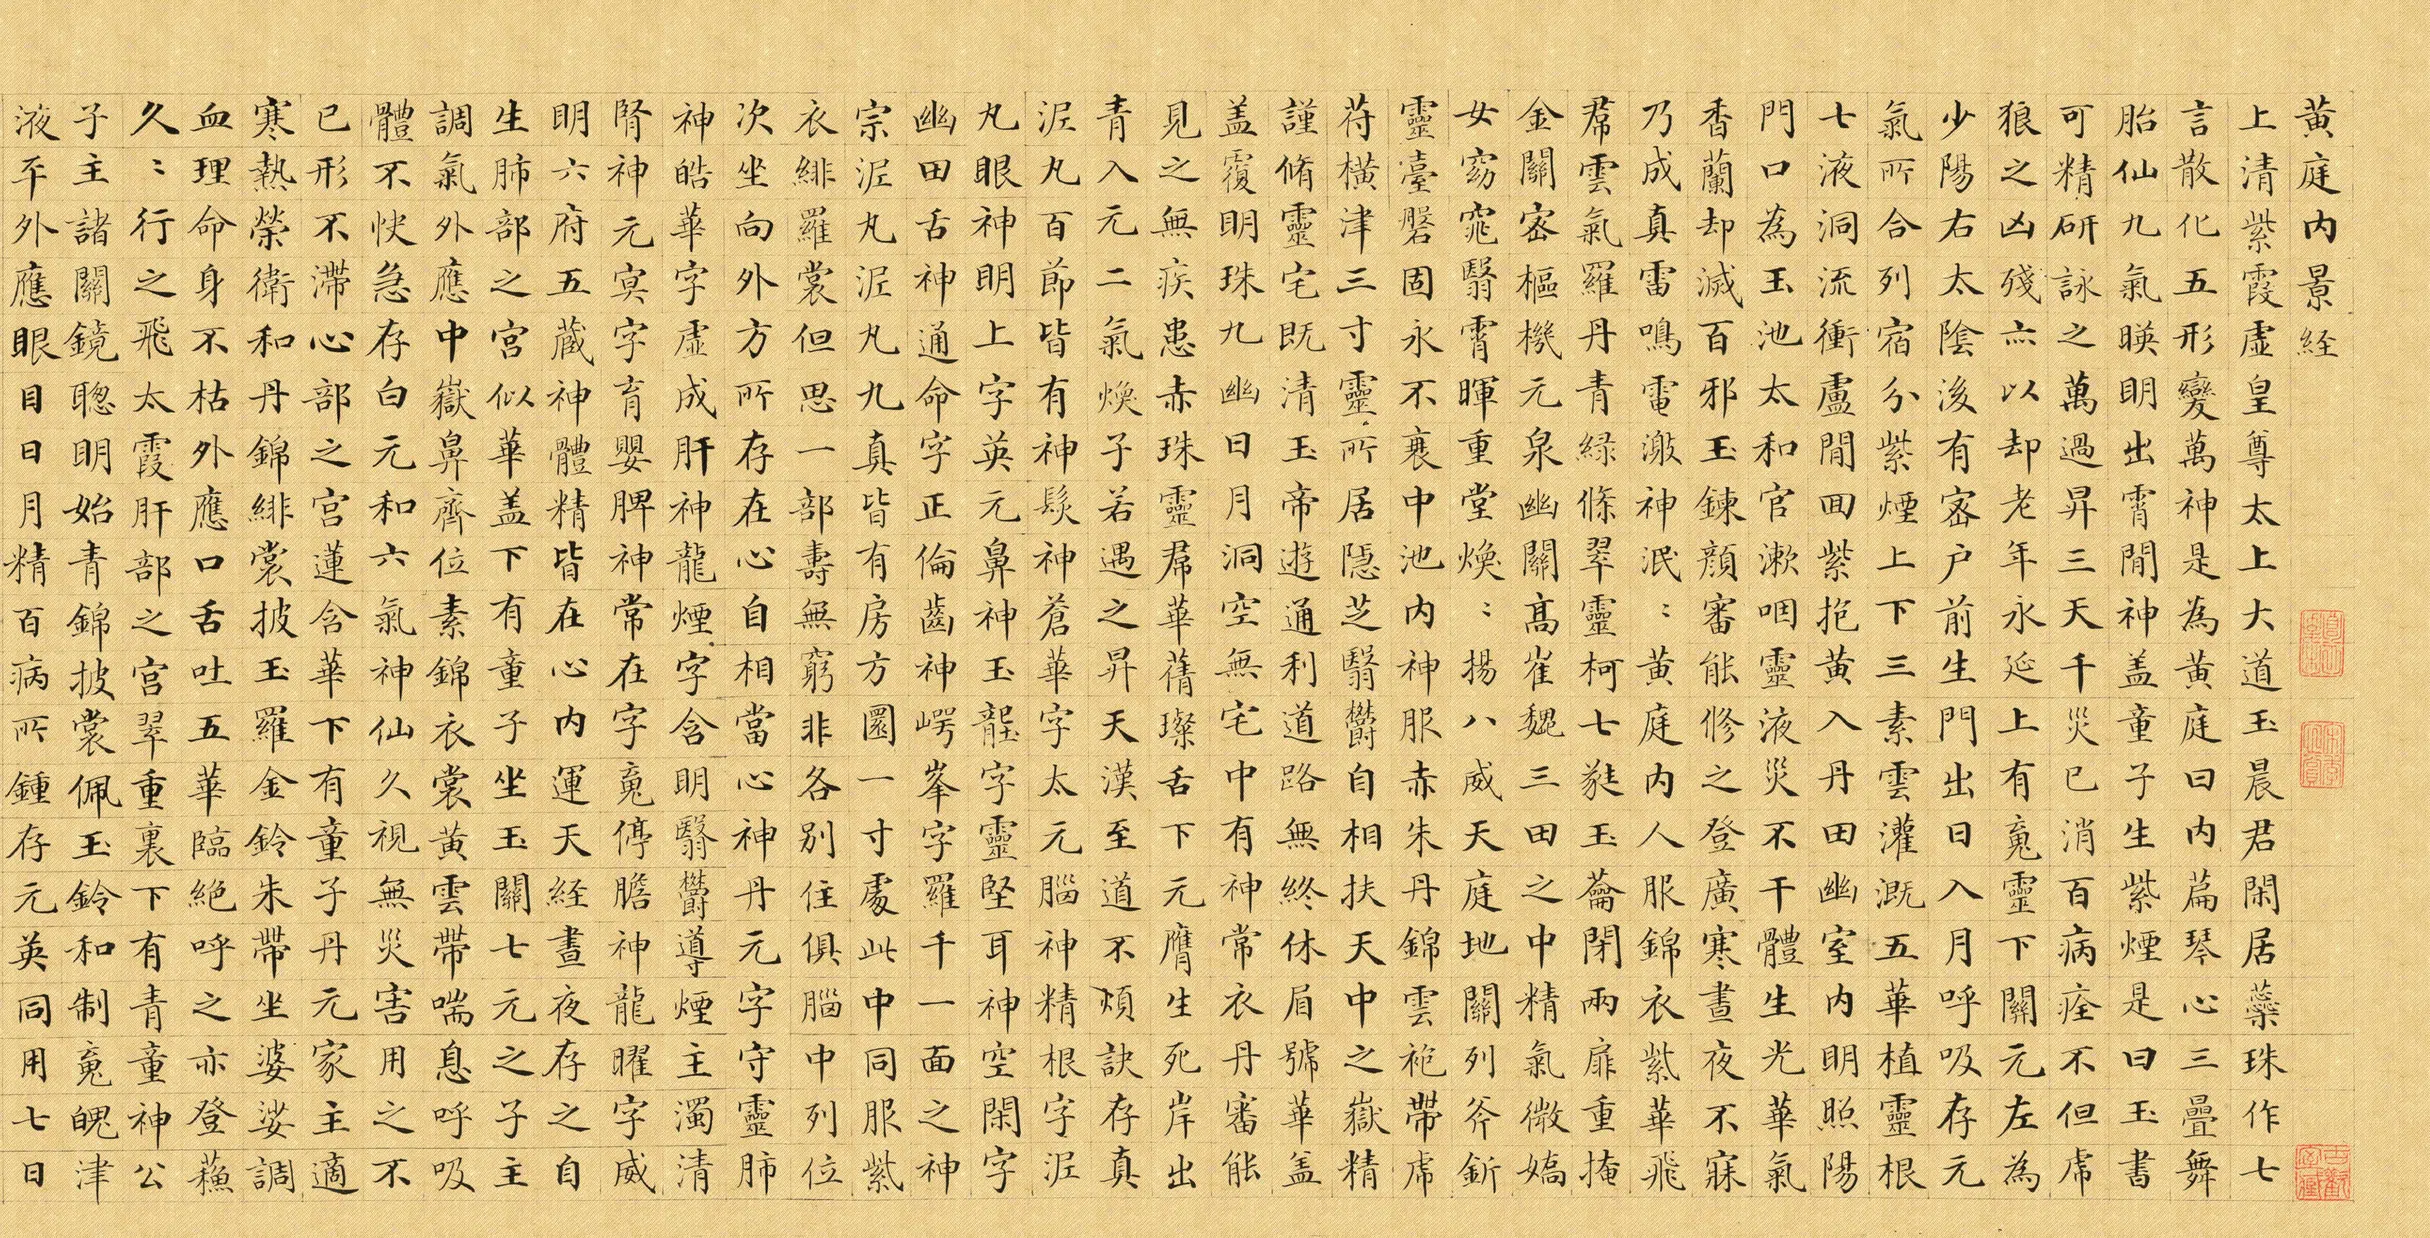 黄庭内景経
上清紫霞虚皇尊太上大道玉晨君閑居蘂珠作七
言散化五形變萬神是為黄庭曰内萹琴心三疊舞
胎仙九氣暎明出霄間神盖童子生紫煙是曰玉書
可精研詠之萬過昇三天千災已消百病痊不但虎
狼之凶殘亦以却老年永延上有䰟靈下關元左為
少陽右太陰後有密户前生門出日入月呼吸存元
氣所合列宿分紫煙上下三素雲灌溉五華植靈根
七液洞流衝盧間回紫抱黄入丹田幽室内明照陽
門口為玉池太和官漱咽靈液災不干體生光華氣
香蘭却滅百邪玉鍊顔審能修之登廣寒晝夜不寐
乃成真雷鳴電激神泯:黄庭内人服錦衣紫華飛
帬雲氣羅丹青緑條翠靈柯七蕤玉蘥閉兩扉重掩
金關密樞機元泉幽關髙崔巍三田之中精氣微嬌
女窈窕翳霄暉重堂煥:揚八威天庭地關列斧釿
靈臺磐固永不衰中池内神服赤朱丹錦雲袍帶虎
苻橫津三寸靈所居隱芝翳欝自相扶天中之嶽精
謹脩靈宅既清玉帝遊通利道路無終休眉號華盖
盖覆明珠九幽日月洞空無宅中有神常衣丹審能
見之無疾患赤珠靈帬華蒨璨舌下元膺生死岸出
青入元二氣煥子若遇之昇天漢至道不煩訣存真
泥丸百節皆有神髮神蒼華字太元腦神精根字泥
丸眼神明上字英元鼻神玉壟字靈堅耳神空閑字
幽田舌神通命字正倫齒神崿峯字羅千一面之神
宗泥丸泥丸九真皆有房方圓一寸處此中同服紫
衣緋羅裳但思一部壽無窮非各别住俱腦中列位
次坐向外方所存在心自相當心神丹元字守靈肺
神皓華字虚成肝神龍煙字含明翳欝導煙主濁清
腎神元冥字育嬰脾神常在字䰟停膽神龍曜字威
明六府五蔵神體精皆在心内運天経晝夜存之自
生肺部之宮似華盖下有童子坐玉關七元之子主
調氣外應中嶽鼻齊位素錦衣裳黄雲帶喘息呼吸
體不快急存白元和六氣神仙久視無災害用之不
已形不滯心部之宮蓮含華下有童子丹元家主適
寒熱榮衛和丹錦緋裳披玉羅金鈴朱帶坐婆娑調
血理命身不枯外應口舌吐五華臨絶呼之亦登蘓
久:行之飛太霞肝部之宮翠重裏下有青童神公
子主諸關鏡聰明始青錦披裳佩玉鈴和制䰟魄津
液平外應眼目日月精百病所鍾存元英同用七日